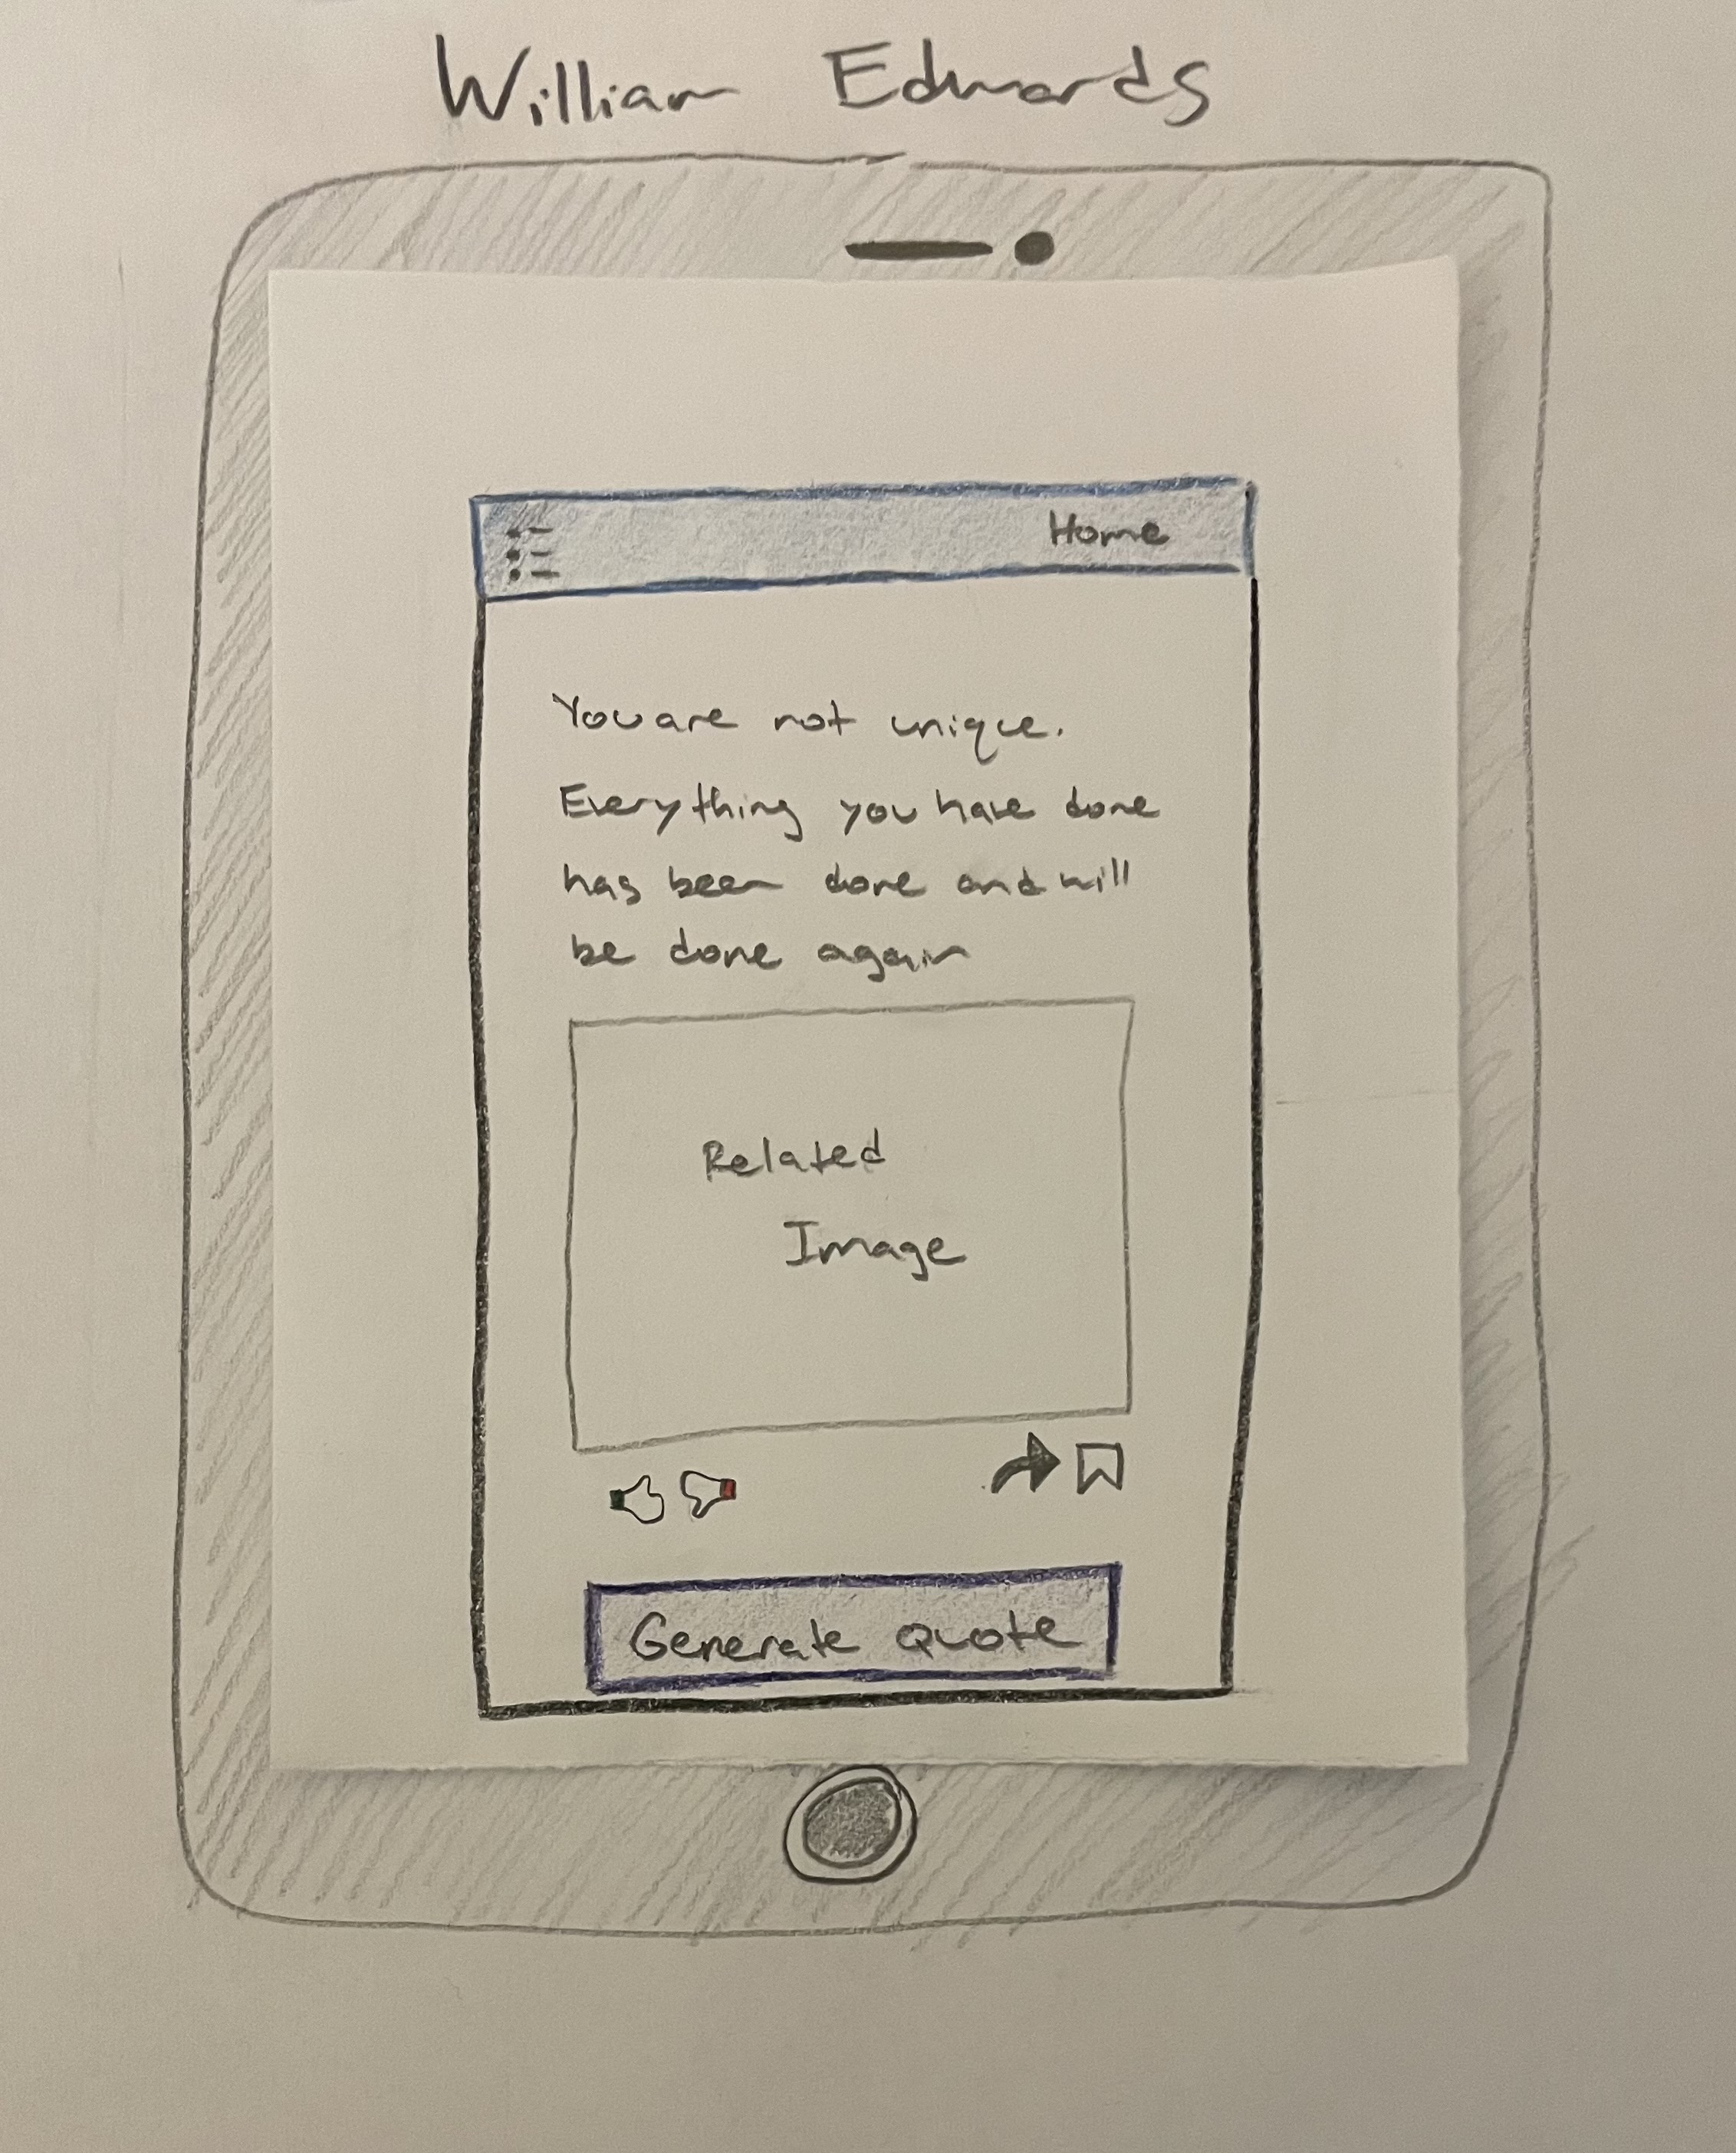 William Edwards
Home
You are not unique.
Everything you have done
has been done and will
be done again
Related
Image
Generate Quote